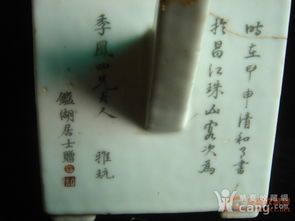 時在甲申清和月書
於昌江珠山客次為
季鳳四兄大人 雅玩
鑑湖居士贈
cang.com